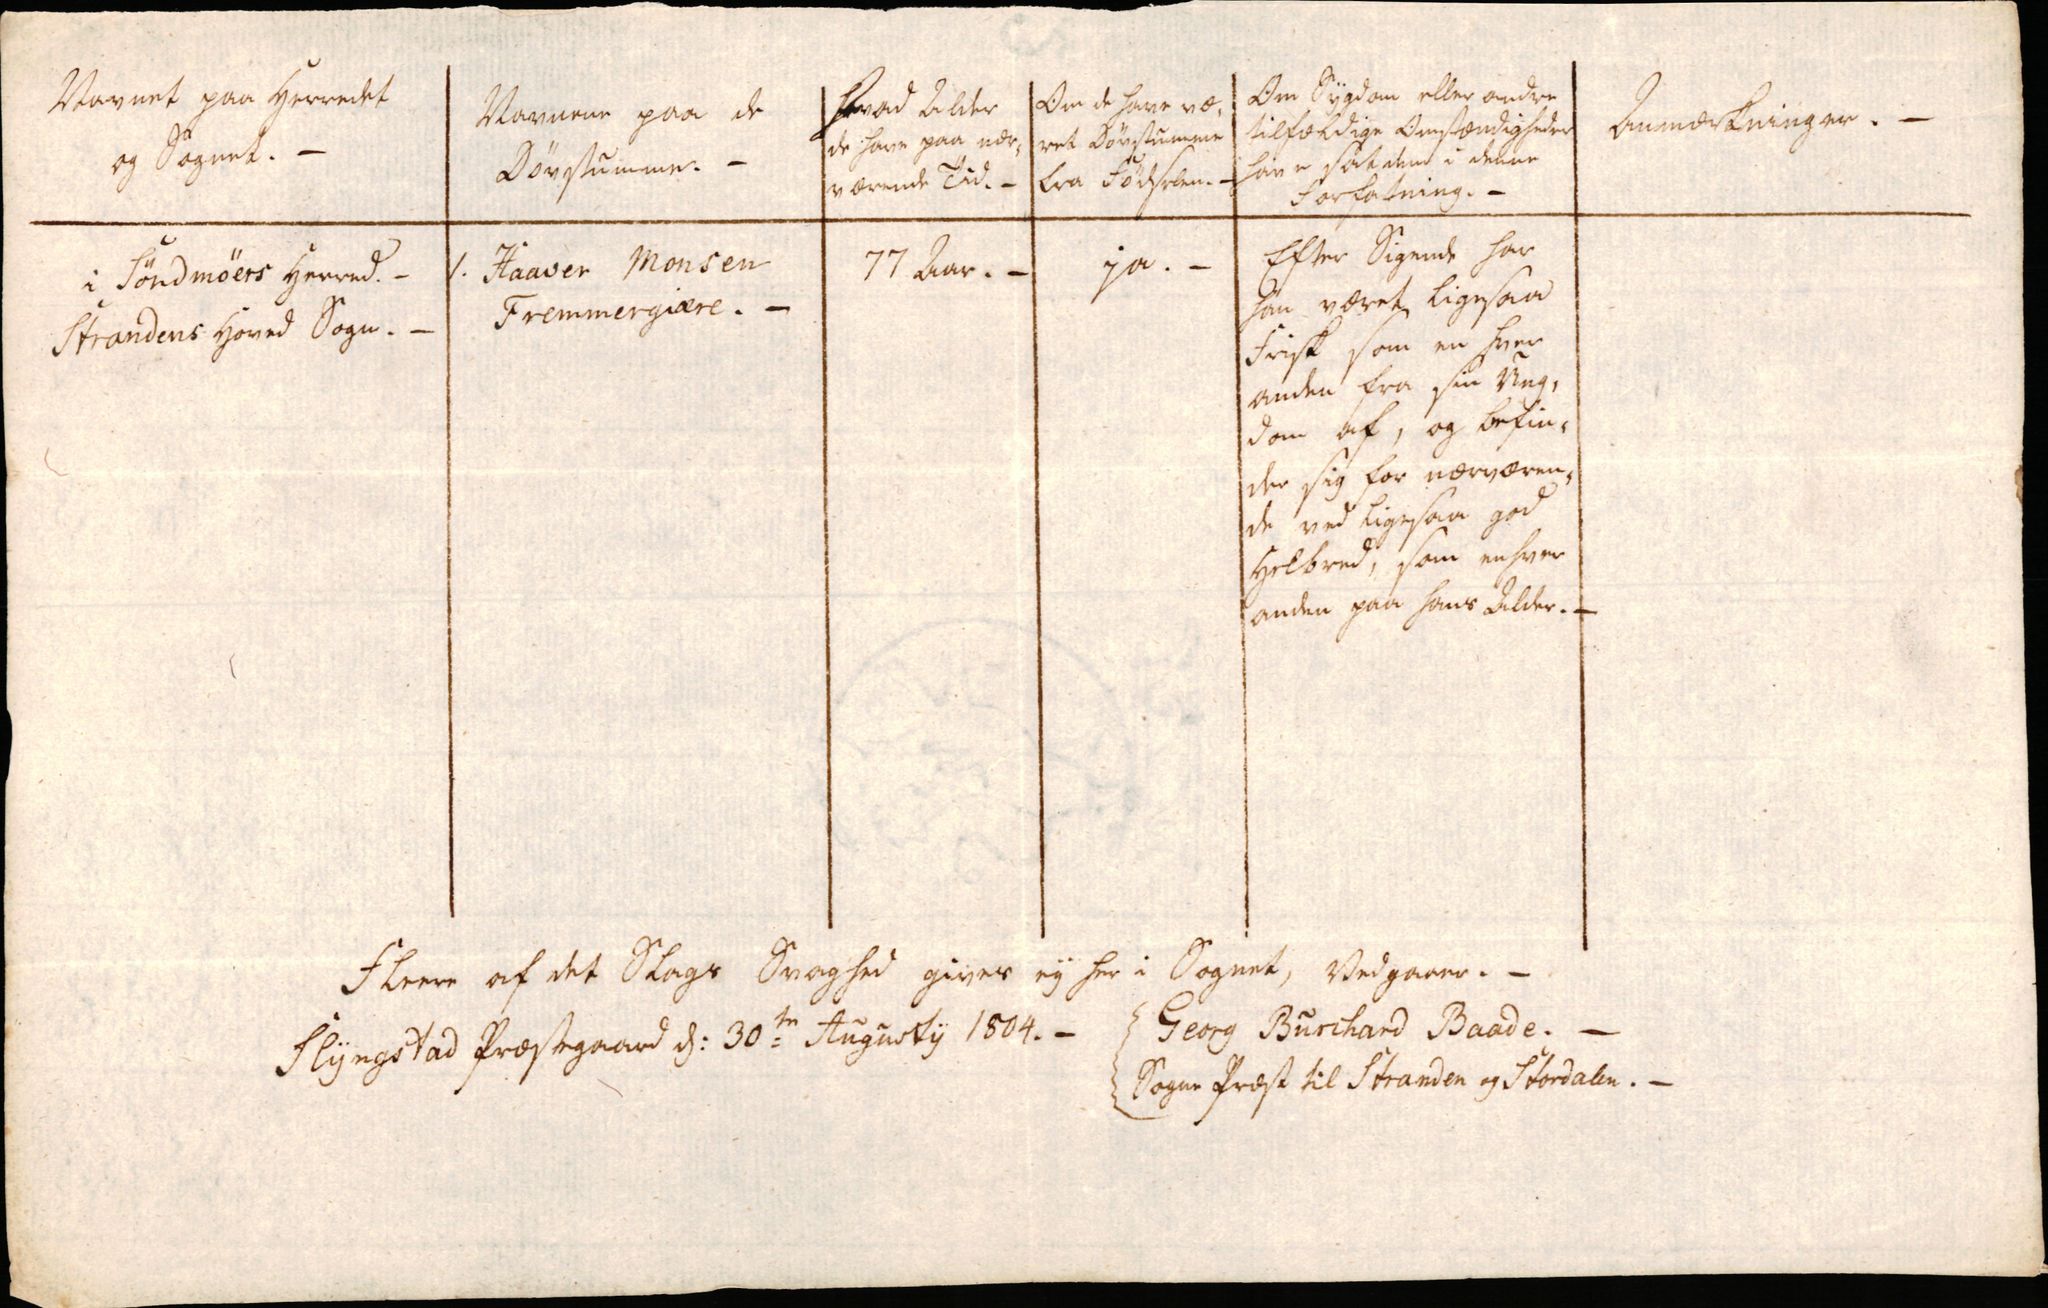 Navnet paa Herredet
og Sognet. –
Navnene paa de
Dövstumme. –
Hvad Alder
de have paa nær-
værende Tid. –
Om de have væ-
ret Dövstumme
fra Födselen. –
Om Sÿgdom eller andre
tilfældige Omstændigheder
have sat dem i denne
Forfatning. –
Anmærkninger. –
i Söndmöers Herred. –
Strandens Hoved Sogn. –
1. Haaver Monsen
Fremmergiære. –
77 Aar. –
ja. –
Efter Sigende har
han været ligesaa
frisk som en hver
anden fra sin Ung-
dom af, og befin-
der sig for nærværen-
de ved ligesaa god
Helbred, som enhver
anden paa hans Alder. –
Fleere af det Slags Svaghed gives eÿ her i Sognet, Vedgaaer. –
Slÿngstad Præstegaard d: 30te Augustÿ 1804. –
Georg Burchard Baade. –
Sogne Præst til Stranden og Stordalen. –